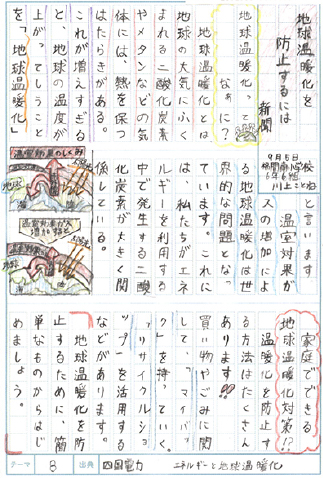 地球温暖化を
防止するには
新聞
地球温暖化って
なぁに?
地球温暖化とは
地球の大気にふく
まれる二酸化炭素
やメタンなどの気
体には、熱を保つ
はたらきがある。
これが増えすぎる
と、地球の温度が
上がってしうこと
を「地球温暖化」
9月5日
小学校
6年6組
川上ことね
と言います
温室効果が
スの増加によ
る地球温暖化は世
界的な問題となっ
ています。これに
は、私たちがエネ
ルギーを利用する
中で発生する二酸
化炭素が大きく関
係している。
温室効果のしくみ
地球
海
陸
温室効果ガスが
増加すると
地球
海
陸
家庭でできる
地球温暖化対策!?
温暖化を防止す
る方法はたくさん
あります!!
買い物やごみに関
して、「マイバッ
グ」を持っていく。
「リサイクルショ
ップ」を活用する
などがあります。
地球温暖化を防
止するために、簡
単なものからはじ
めましょう。
テーマ
8
出典
四国電力
エネルギーと地球温暖化